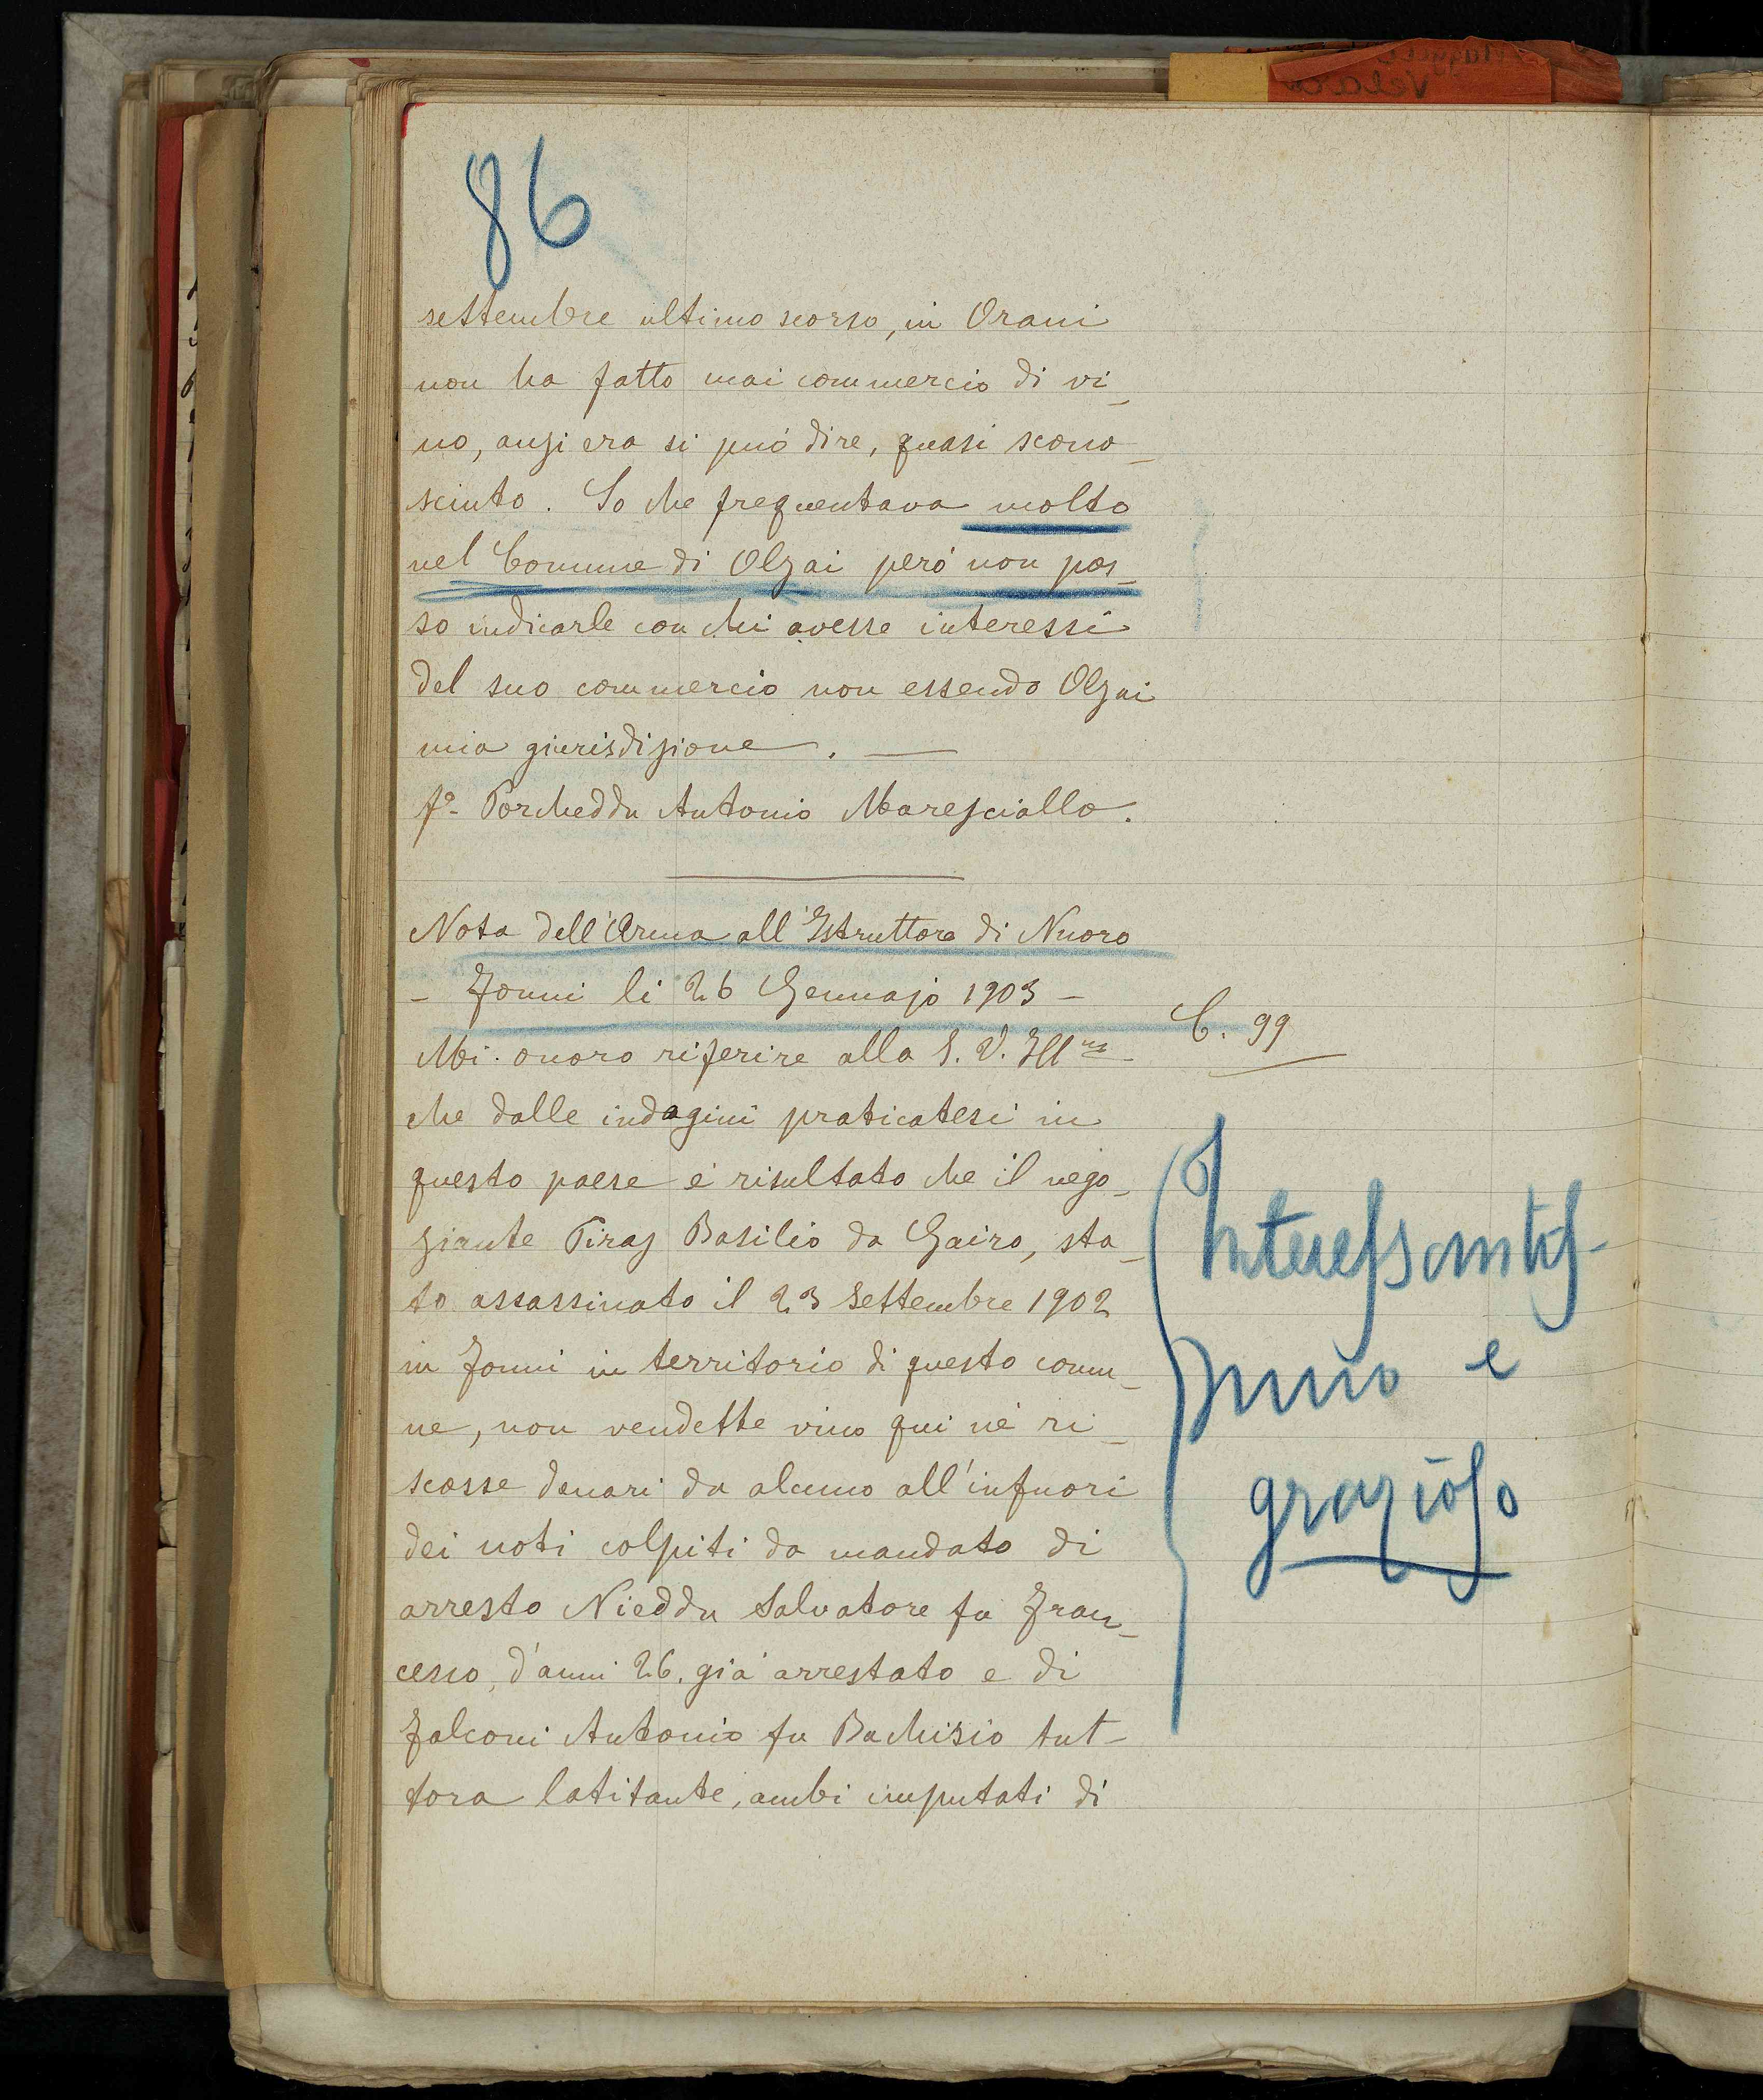 86
settembre ultimo scorso, in Orani
non ha fatto mai commercio di vi_
no, anzi era si può dire, quasi scono_
sciuto. So che frequentava molto
nel Comune di Olzai però non pos_
so indicarle con chi avesse interessi
del suo commercio non essendo Olzai
mia giurisdizione. —
fº- Porcheddu Antonio Maresciallo.
Nota dell'Arma all'Istruttore di Nuoro
- Fonni li 26 Gennajo 1903 -
C. 99
Mi onoro riferire alla S. V. Ill
che dalle indagini praticatesi in
questo paese è risultato che il nego_
ziante Piras Basilio da Gairo, sta_
to assassinato il 23 Settembre 1902
in Fonni in territorio di questo comu_
ne, non vendette vino qui nè ri_
scosse denari da alcuno all'infuori
dei noti colpiti da mandato di
arresto Nieddu Salvatore fu Fran_
cesco, d'anni 26, già arrestato e di
Falconi Antonio fu Bachisio tut-
tora latitante, ambi imputati di
Interessantis-
simo e
grazioso
Velacs